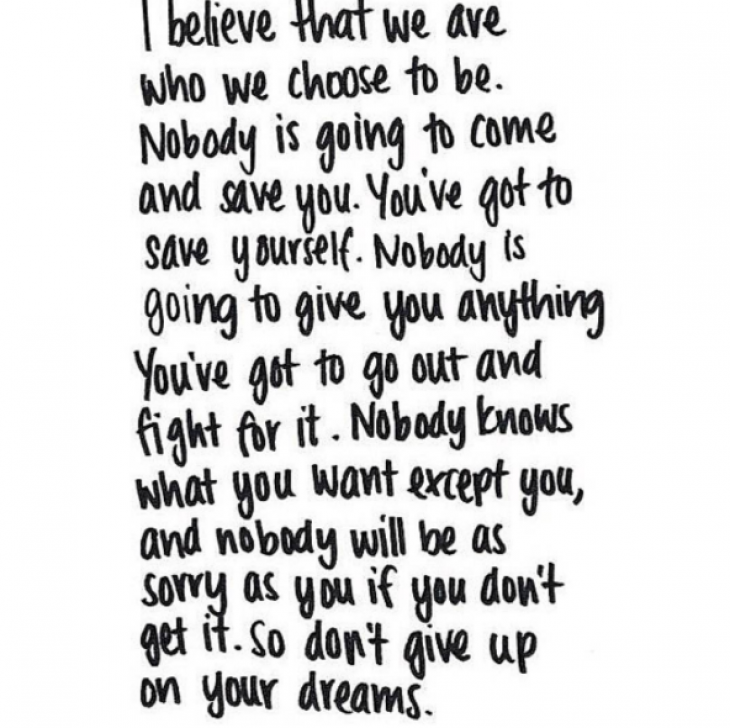 I believe that we are
who we choose to be.
Nobody is going to come
and save you. You've got to
save yourself. Nobody is
going to give you anything
You've got to go out and
fight for it. Nobody knows
what you want except you,
and nobody will be as
sorry as you if you don't
get it. So don't give up
on your dreams.